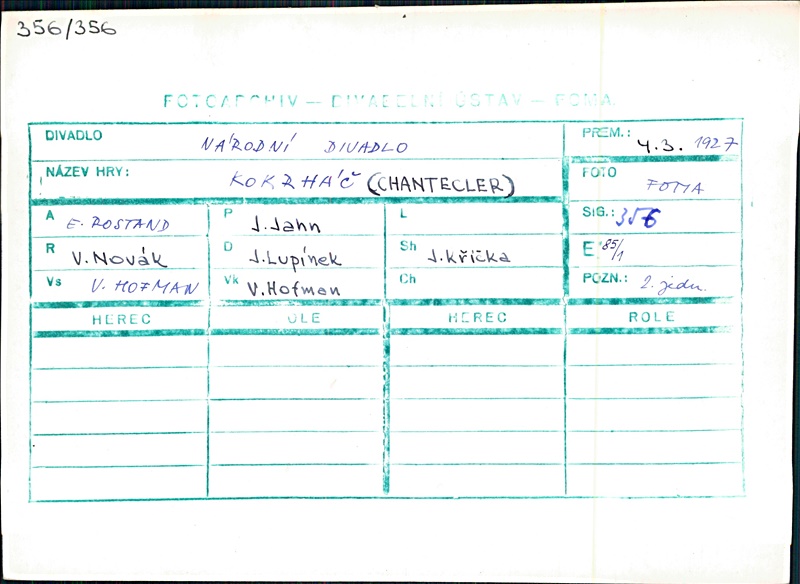 356/356
FOTOARCHIV — DIVADELNÍ ÚSTAV — FOMA
DIVADLO NÁRODNÍ DIVADLO PREM.: 4.3. 1927
NÁZEV HRY: KOKRHÁČ (CHANTECLER) FOTO FOMA
A E. ROSTAND P J.Jahn L SIG.: 356
R V.Novák D J.Lupínek Sh J.Křička E 85/1
Vs V. HOFMAN Vk V.Hofman Ch POZN.: 2. jedn.
HEREC OLE HEREC ROLE